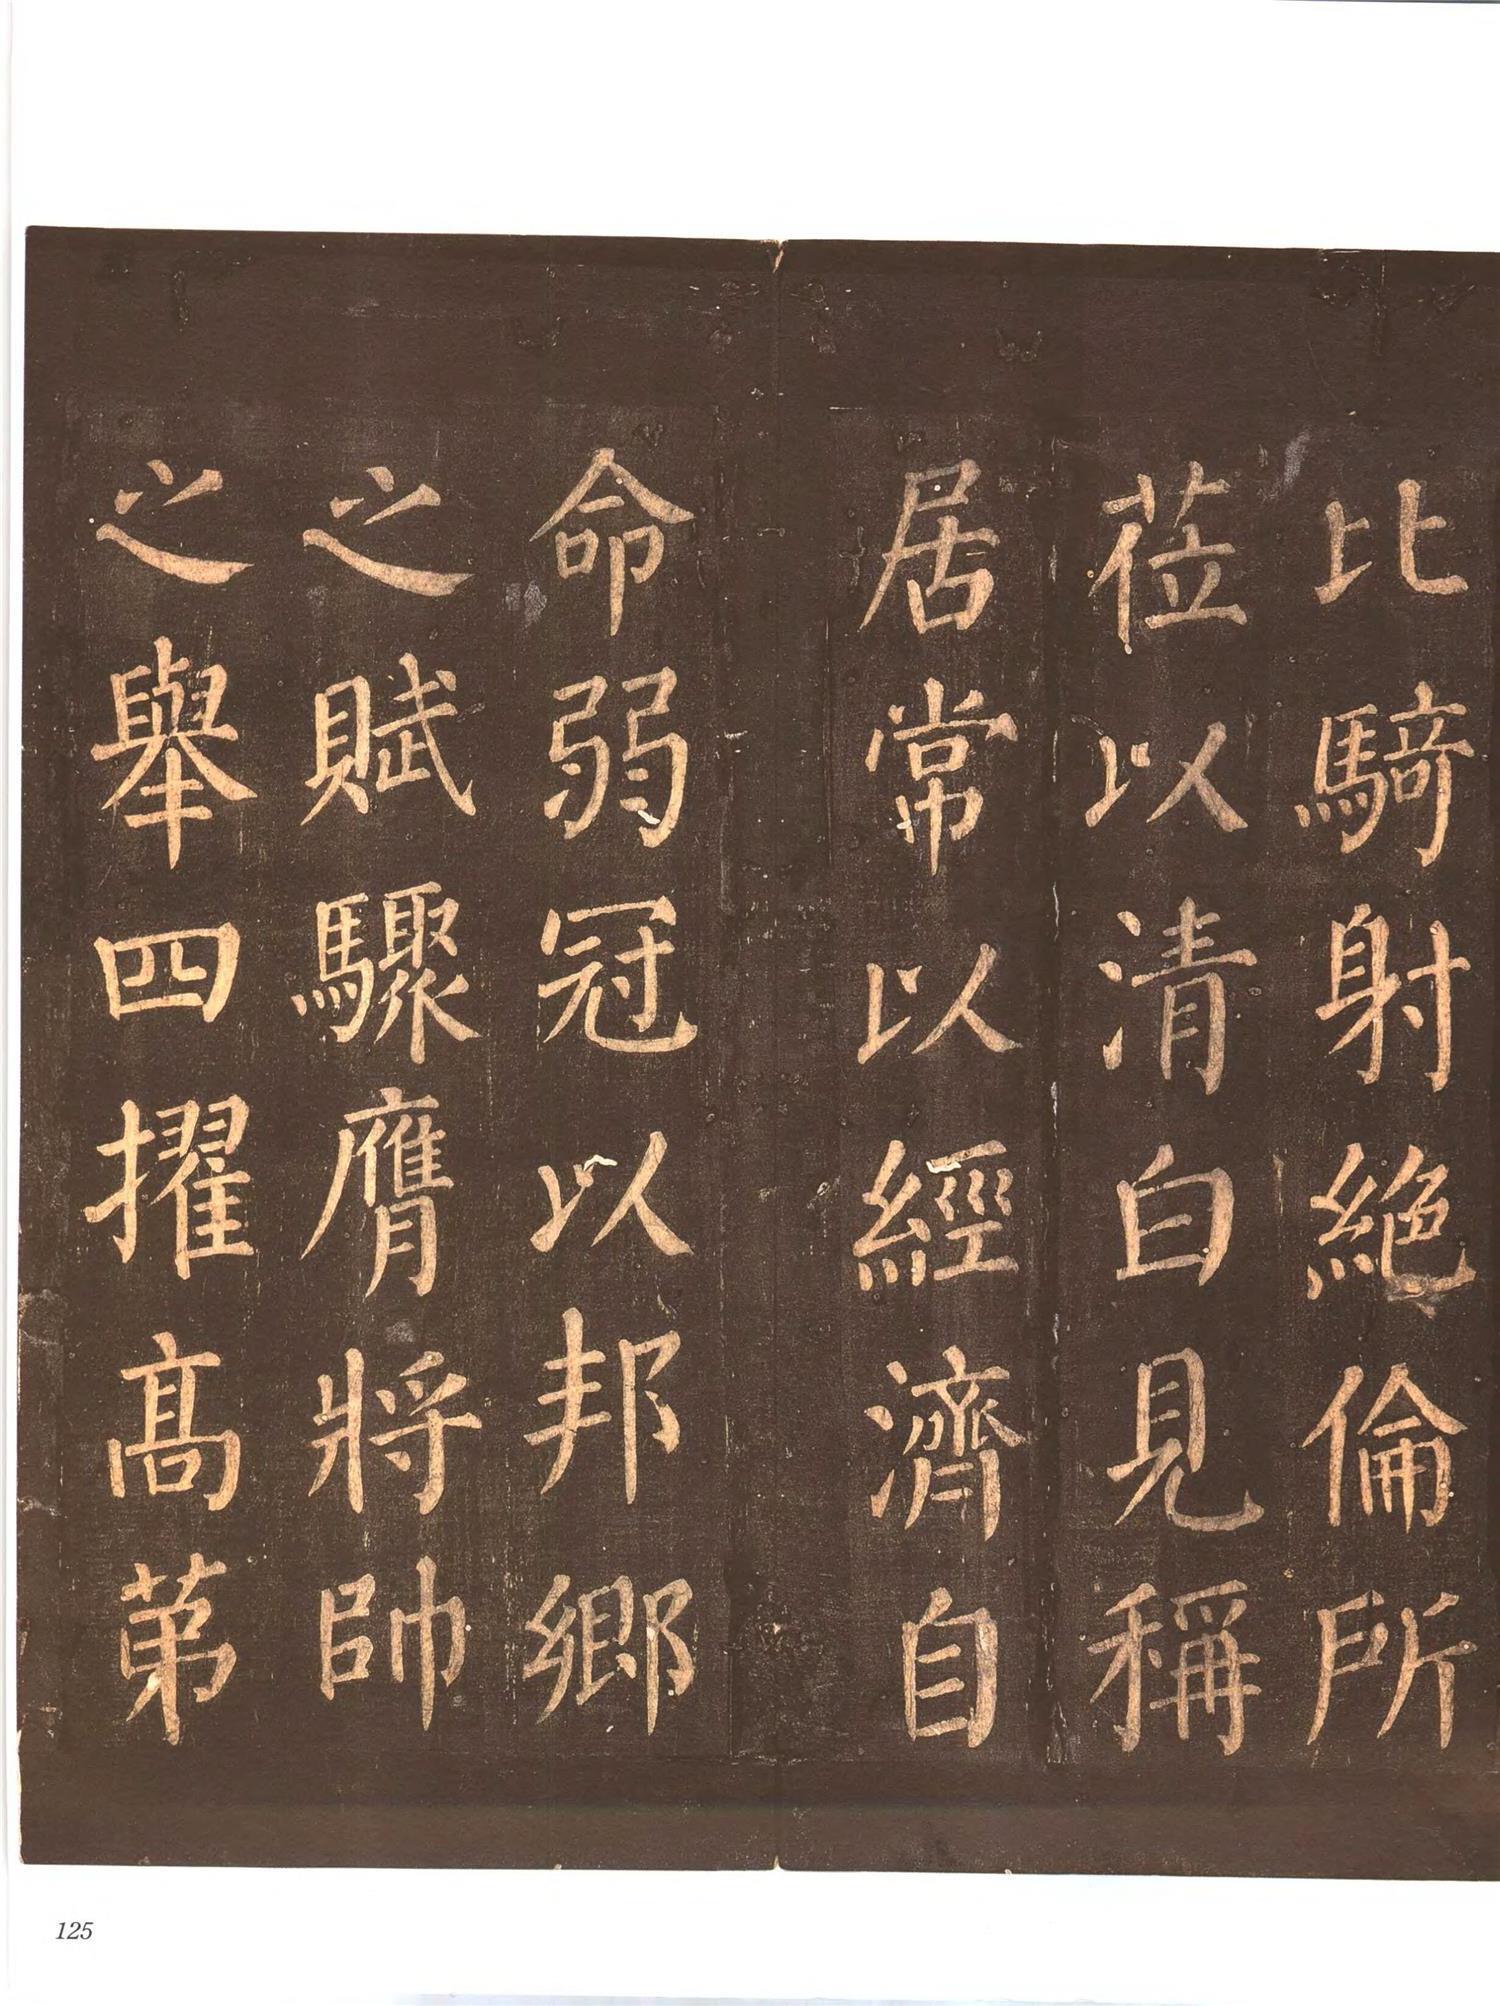 比騎射絶倫所
莅以清白見稱
居常以經濟自
命弱冠以邦鄉
之賦驟膺將帥
之舉四擢高第
125